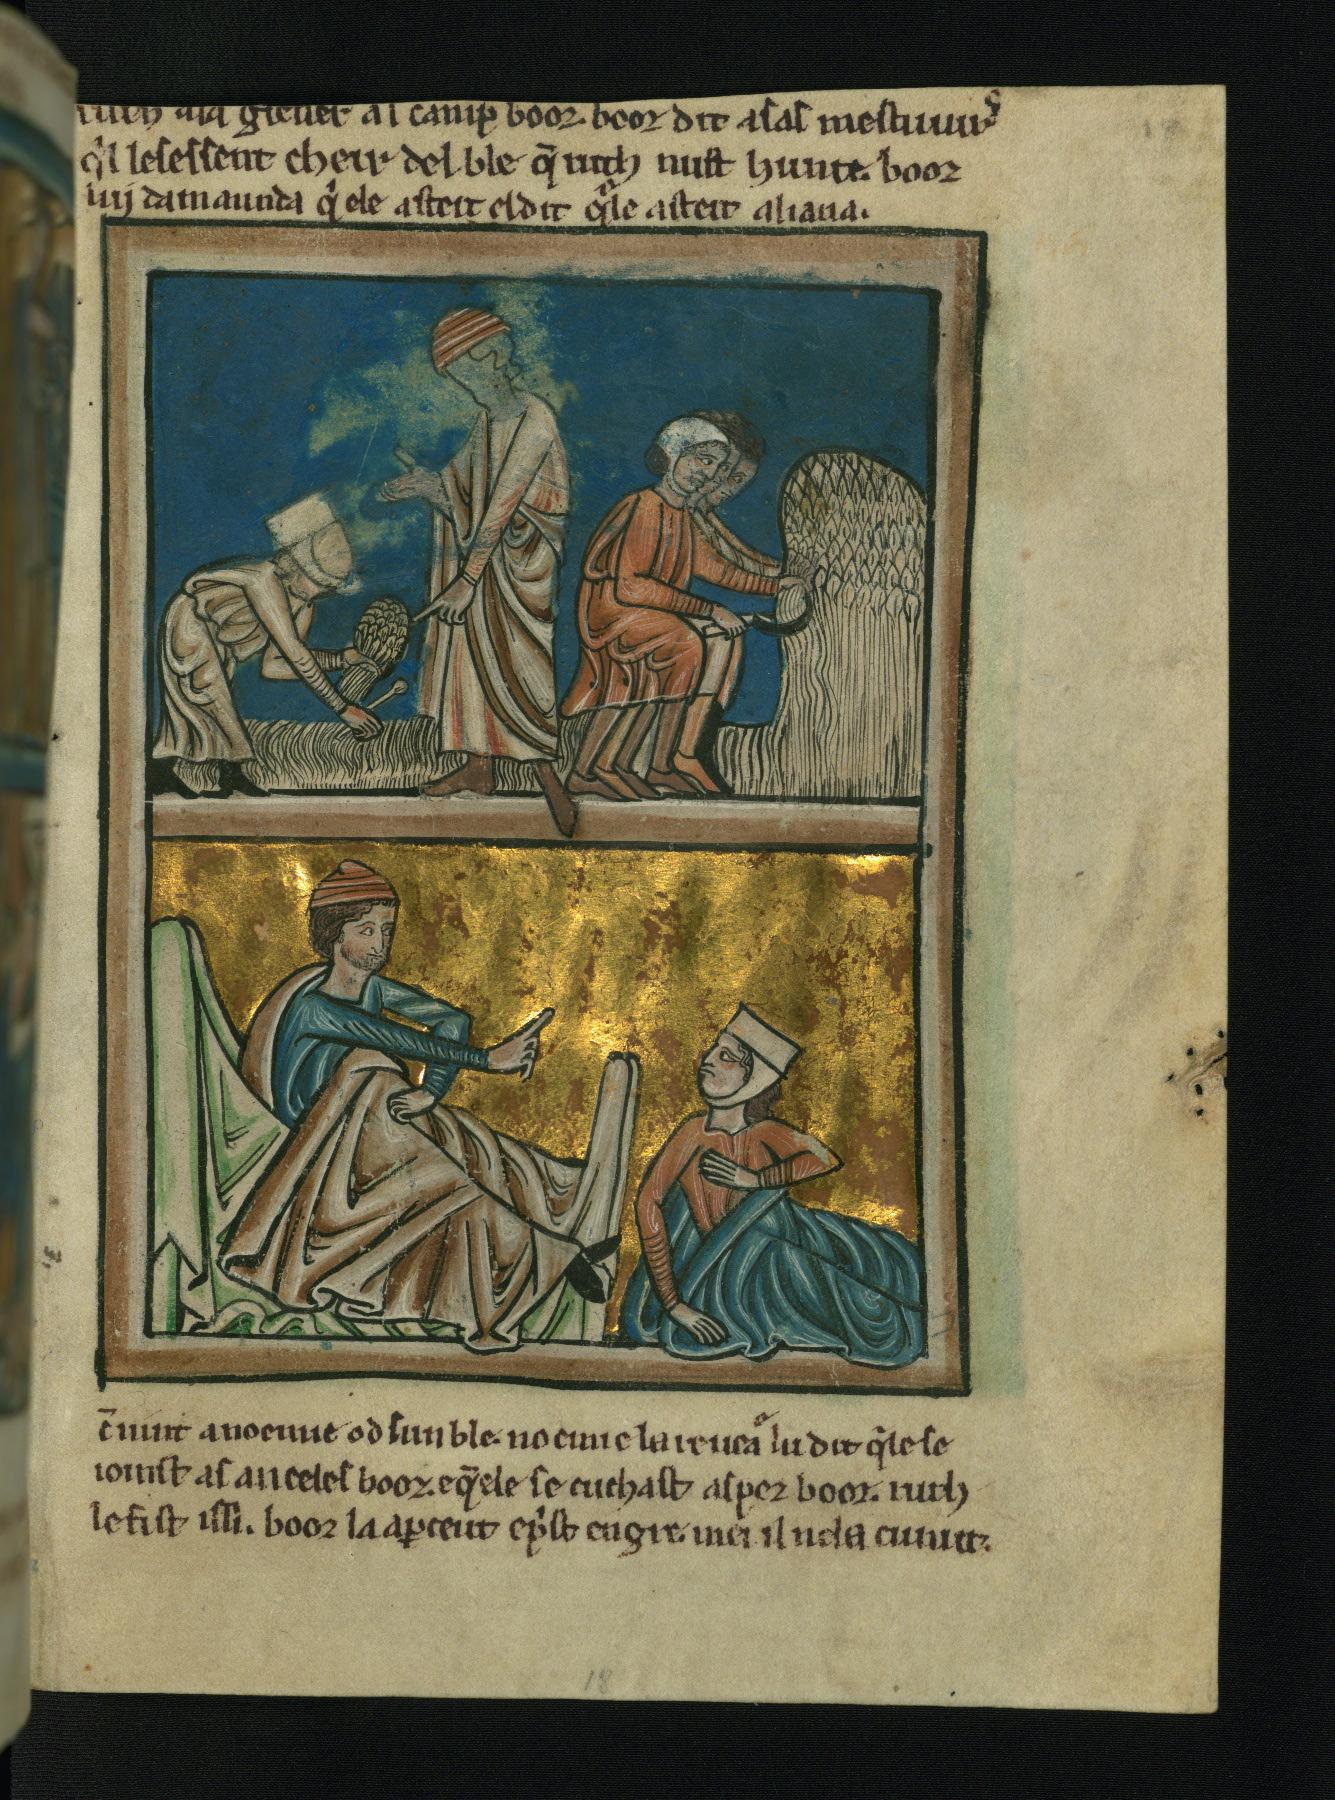 ruth ala glener al camp booz. booz dit a sas mestiuurs
q'l lesessent cheir del ble q̄ ruth nust hunte. booz
lui damaunda q' ele asteit el dit q'le asteit aliana.
ē uint a noemie od sun ble. noemie la reuea lu dit q'le se
iouist as anceles booz. e q̄ ele se cuchast as pez booz. ruth
le fist issi. booz la apceut e p'st en gre. mei il ne la cunut.
18